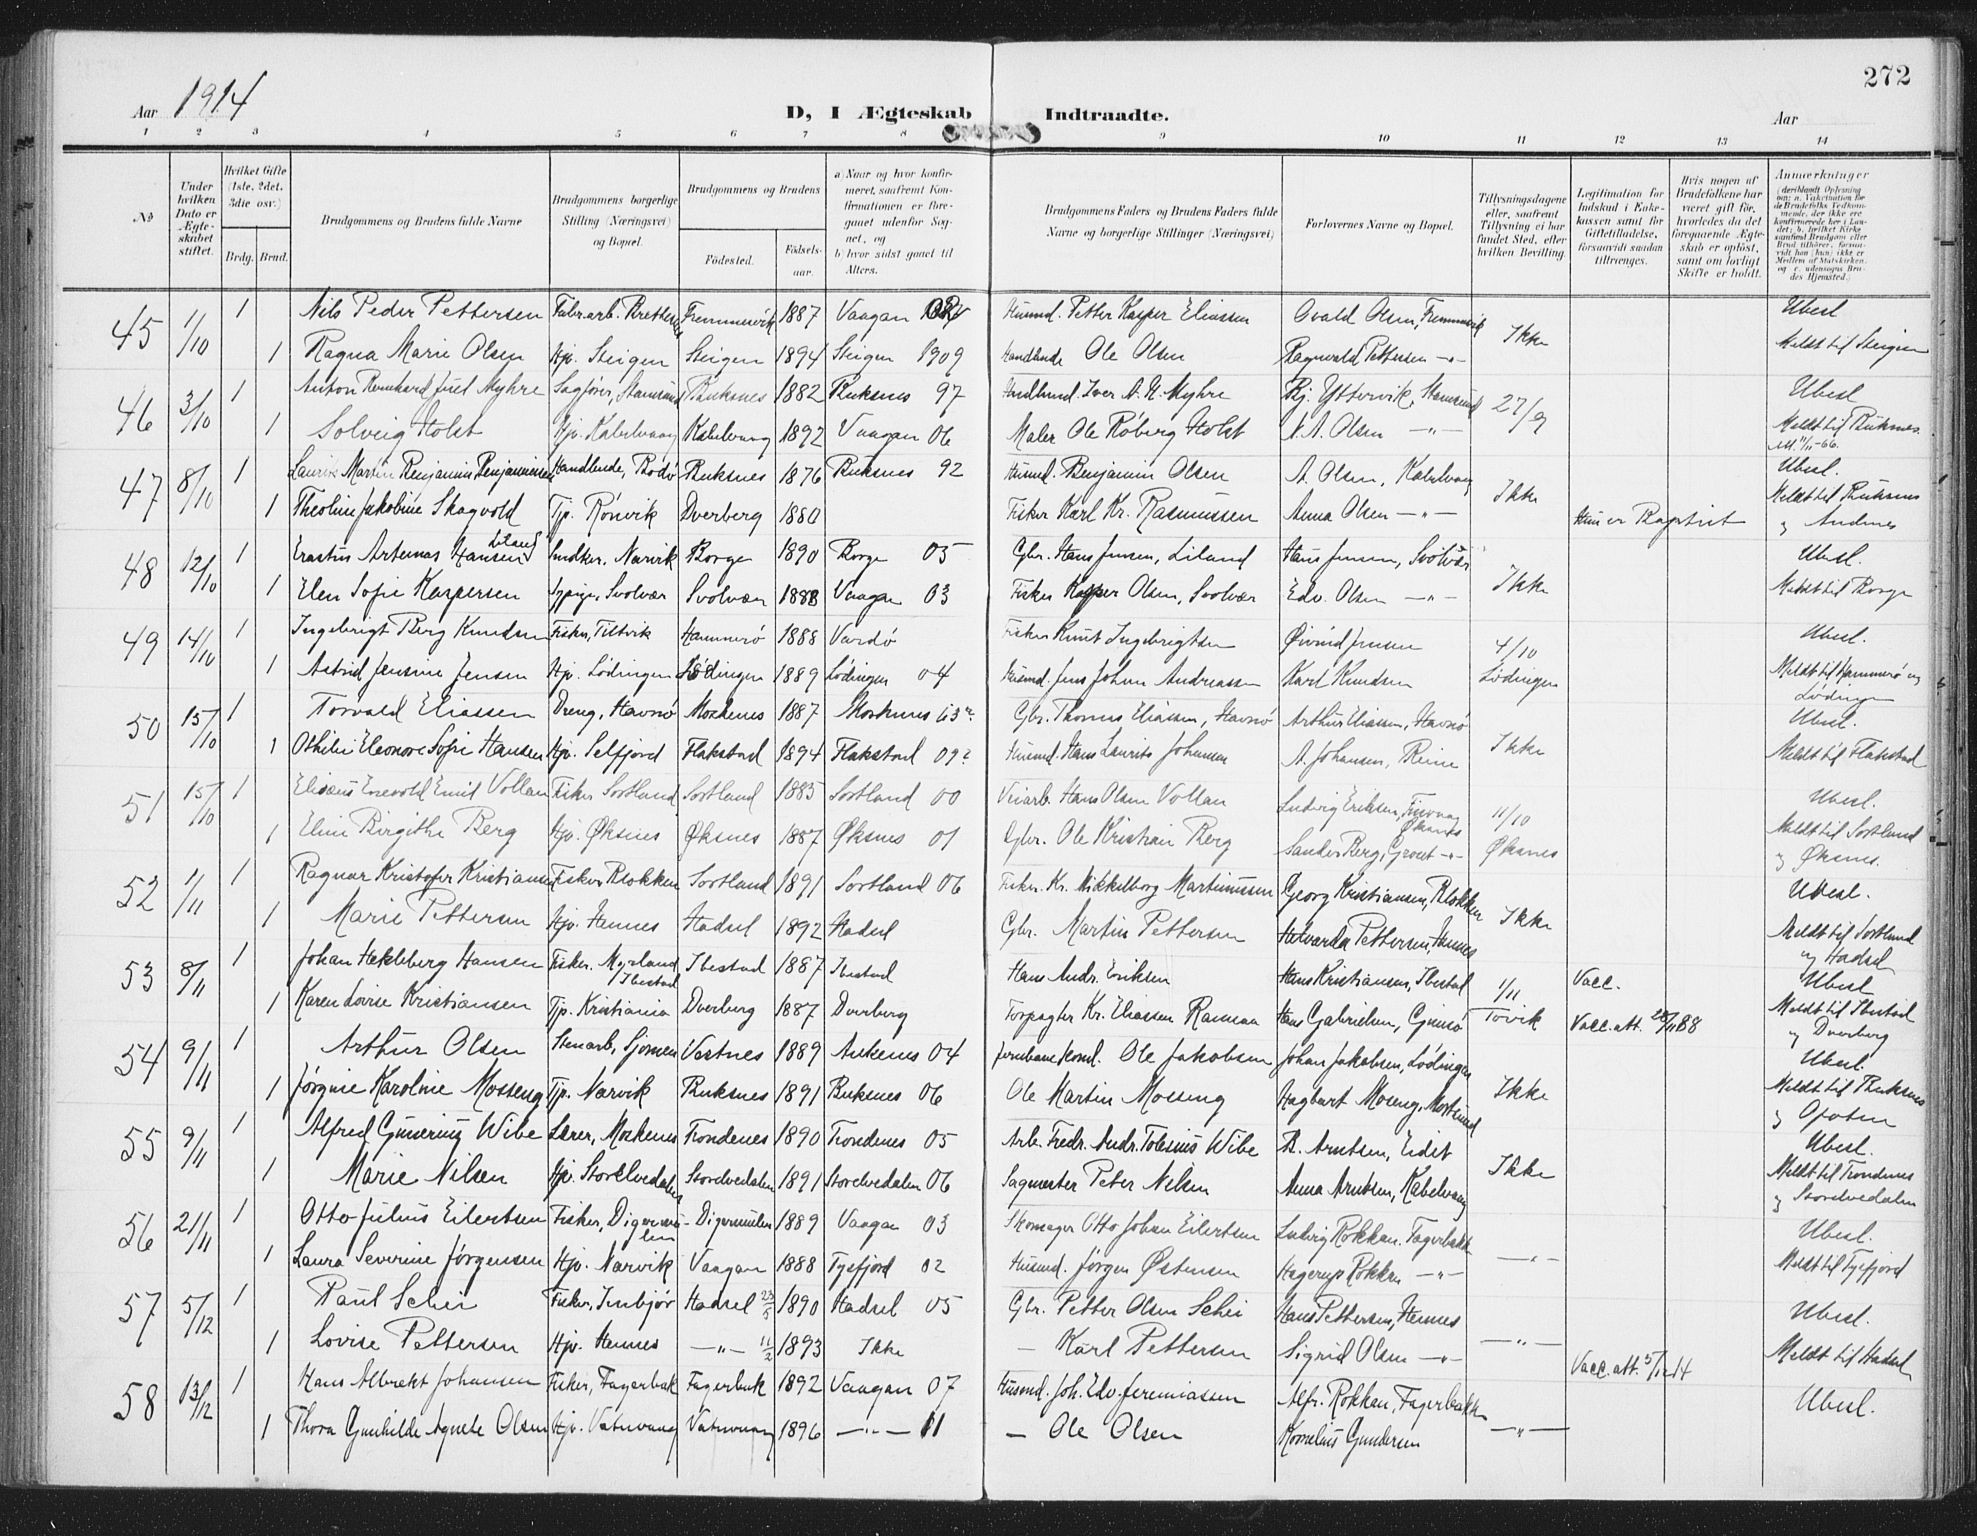 272
Aar 1914 D, I Ægteskab Indtraadte. Aar
1 2 3 4 5 6 7 8 9 10 11 12 13 14
№
Under hvilken Dato er Ægteskabet stiftet.
Hvilket Gifte (1ste, 2det, 3die osv.)
Brdg. Brud.
Brudgommens og Brudens fulde Navne
Brudgommens borgerlige Stilling (Næringsvei) og Bopæl.
Brudgommens og Brudens
Fødested. Fødselsaar.
a) Naar og hvor konfirmeret, saafremt Konfirmationen er foregaaet udenfor Sognet, og
b) hvor sidst gaaet til Alters.
Brudgommens Faders og Brudens Faders fulde Navne og borgerlige Stillinger (Næringsvei)
Forlovernes Navne og Bopæl.
Tillysningsdagene eller, saafremt Tillysning ei har fundet Sted, efter hvilken Bevilling.
Legitimation for Indskud i Enkekassen samt for Giftetilladelse, forsaavidt saadan tiltrænges.
Hvis nogen af Brudefolkene har været gift før, hvorledes da det foregaaende Ægteskab er opløst, samt om lovligt Skifte er holdt.
Anmærkninger
45 1/10 1 Nils Peder Pettersen Fremmesvik 1887 Vaagan Husmd. Petter Kasper Eliassen Osvald Olsen, Ikke Ubesl
1 Ragna Marie Olsen Hjv. Steigen Steigen 1894 Steigen 1909 Handlende Ole Olsen Ragnvald Pettersen -"- Meldt til Steigen
46 3/10 1 Anton Juel Myhre Sagfører, Stamsund Buksnes 1882 Buksnes 97 Handlsmd. Iver A. N. Myhre Bj. Yttervik, Stamsund 27/9 Ubesl
1 Solveig Holst Hjv. Kabelvaag Kabelvaag 1892 Vaagan 06 Maler Ole Røberg Holst N. A. Olsen -"- Meldt til Buksnes.
47 8/10 1 Martin Benjamin Benjaminsen Handlende, Bodø Buksnes 1876 Buksnes 92 Husmd. Benjamin Olsen A. Olsen, Kabelvaag Ikke Ubesl.
1 Theoline Jakobine Skagvold Tjp. Rønvik Dverberg 1880 Fisker Karl Kr. Rasmussen Anna Olsen -"- Hun er Baptist Meldt til Buksnes og Andenes
48 12/10 1 Erastus Artemas Hansen Liland Snedker, Narvik Borge 1890 Borge 05 Gbr. Hans Jensen, Liland Hans Jensen, Svolvær Ikke Ubesl.
1 Elen Sofie Kaspersen Sypige, Svolvær Svolvær 1883 Vaagan 03 Fisker Kasper Olsen, Svolvær Edv. Olsen -"- Meldt til Borge
49 14/10 1 Ingebrigt Berg Knudsen Fisker, Tiltvik Hammerø 1888 Vardø Fisker Knut Ingebrigtsen Øivind Jensen 4/10 Lødingen Ubesl.
1 Astrid Jensine Jensen Hjv. Lødingen Lødingen 1889 Lødingen 04 Husmd. Jens Johan Andreassen Karl Knudsen Meldt til Hammerø og Lødingen
50 15/10 1 Torvald Eliassen Dreng, Havnø Moskenes 1887 Moskenes Gbr. Thomas Eliassen, Havnø Arthur Eliassen, Havnø Ikke Ubesl.
1 Othilie Eleonore Sofie Hansen Hjv. Selfjord Flakstad 1894 Flakstad 09 Husmd. Hans Laurits Johansen A. Johansen, Reine Meldt til Flakstad
51 15/10 1 Elisæus Enevold Emil Vollan Fisker Sortland Sortland 1885 Sortland 00 Veiarb. Hans Olsen Vollan Ludvig Eriksen, Tinvaag Øksnes 11/10 Øksnes Ubesl.
1 Eline Birgithe Berg Hjv. Øksnes Øksnes 1887 Øksnes 01 Gbr. Ole Kristian Berg Sander Berg, -"- Meldt til Sortland og Øksnes.
52 1/11 1 Ragnar Kristofer Kristiansen Fisker Blokken Sortland 1891 Sortland 06 Fisker Kr. Mikkelborg Martinussen Georg Kristiansen, Blokken Ikke Ubesl.
1 Marie Pettersen Hjv. Hennes Hadsel 1892 Hadsel Gbr. Martin Pettersen Pettersen, Hennes Meldt til Sortland og Hadsel
53 8/11 1 Johan Hekleberg Hansen Fisker. Myrland Ibestad Ibestad 1887 Ibestad Hans Andr. Eriksen Hans Kristiansen, Ibestad 1/11 Tovik Vacc. Ubesl
1 Karen Lovise Kristiansen Tjp. Kristiania Dverberg 1887 Dverberg Torpagter Kr. Eliassen Ramsaa Hans Gabrielsen, Gimsø Vacc. att. Meldt til Ibestad og Dverberg
54 9/11 1 Arthur Olsen Stenarb. Sjomen Vestnes 1889 Ankenes 04 Ole Jakobsen Johan Jakobsen, Lødingen Ikke Ubesl.
1 Jørgine Karoline Mosseng Tjp. Narvik Buksnes 1891 Buksnes 06 Ole Martin Moseng Hagbart Moseng, Mortsund Meldt til Buksnes og Ofoten
55 9/11 1 Alfred Gunerius Wibe Lærer, Moskenes Trondenes 1890 Trondenes 05 Arb. Fredr. Andr. Tolesius Wibe Th. Arntsen, Eidet Ikke Ubesl.
1 Marie Nilsen Hjv. Storelvedalen Storelvedalen 1891 Storelvedalen 06 Sagmester Peter Nilsen Anna Arntsen, Kabelvaag Meldt til Trondenes og Storelvedalen
56 21/11 1 Otto Julius Eilertsen Fisker, Digermulen Digermulen 1889 Vaagan 03 Skomager Otto Johan Eilertsen Ludvig Rokkan, Fagerbakk -"- Ubesl.
1 Laura Severine Jørgensen Hjv. Narvik Vaagan 1888 Tysfjord 02 Husmd. Jørgen Østensen Hagerup Rokkan -"- Meldt til Tysfjord
57 5/12 1 Paul Schei Fisker, Innbjør Hadsel 23/5 1890 Hadsel 05 Gbr. Petter Olsen Schei Hans Pettersen, Hennes -"- Ubesl.
1 Lovise Pettersen Hjv. Hennes -"- 11/2 1893 Ikke - Karl Pettersen Sigrid Olsen -"- Vacc. att. 5/12 14 Meldt til Hadsel
58 13/12 1 Hans Albrekt Johansen Fisker, Fagerbak Fagerbak 1892 Vaagan 07 Husmd. Joh. Edv. Jeremiassen Alfr. Rokkan, Fagerbakk -"- Ubesl.
1 Thora Gunhilde Agnete Olsen Hjv. Vatervaag Vatervaag 1896 -"- 11 - Ole Olsen Kornelius Gundersen